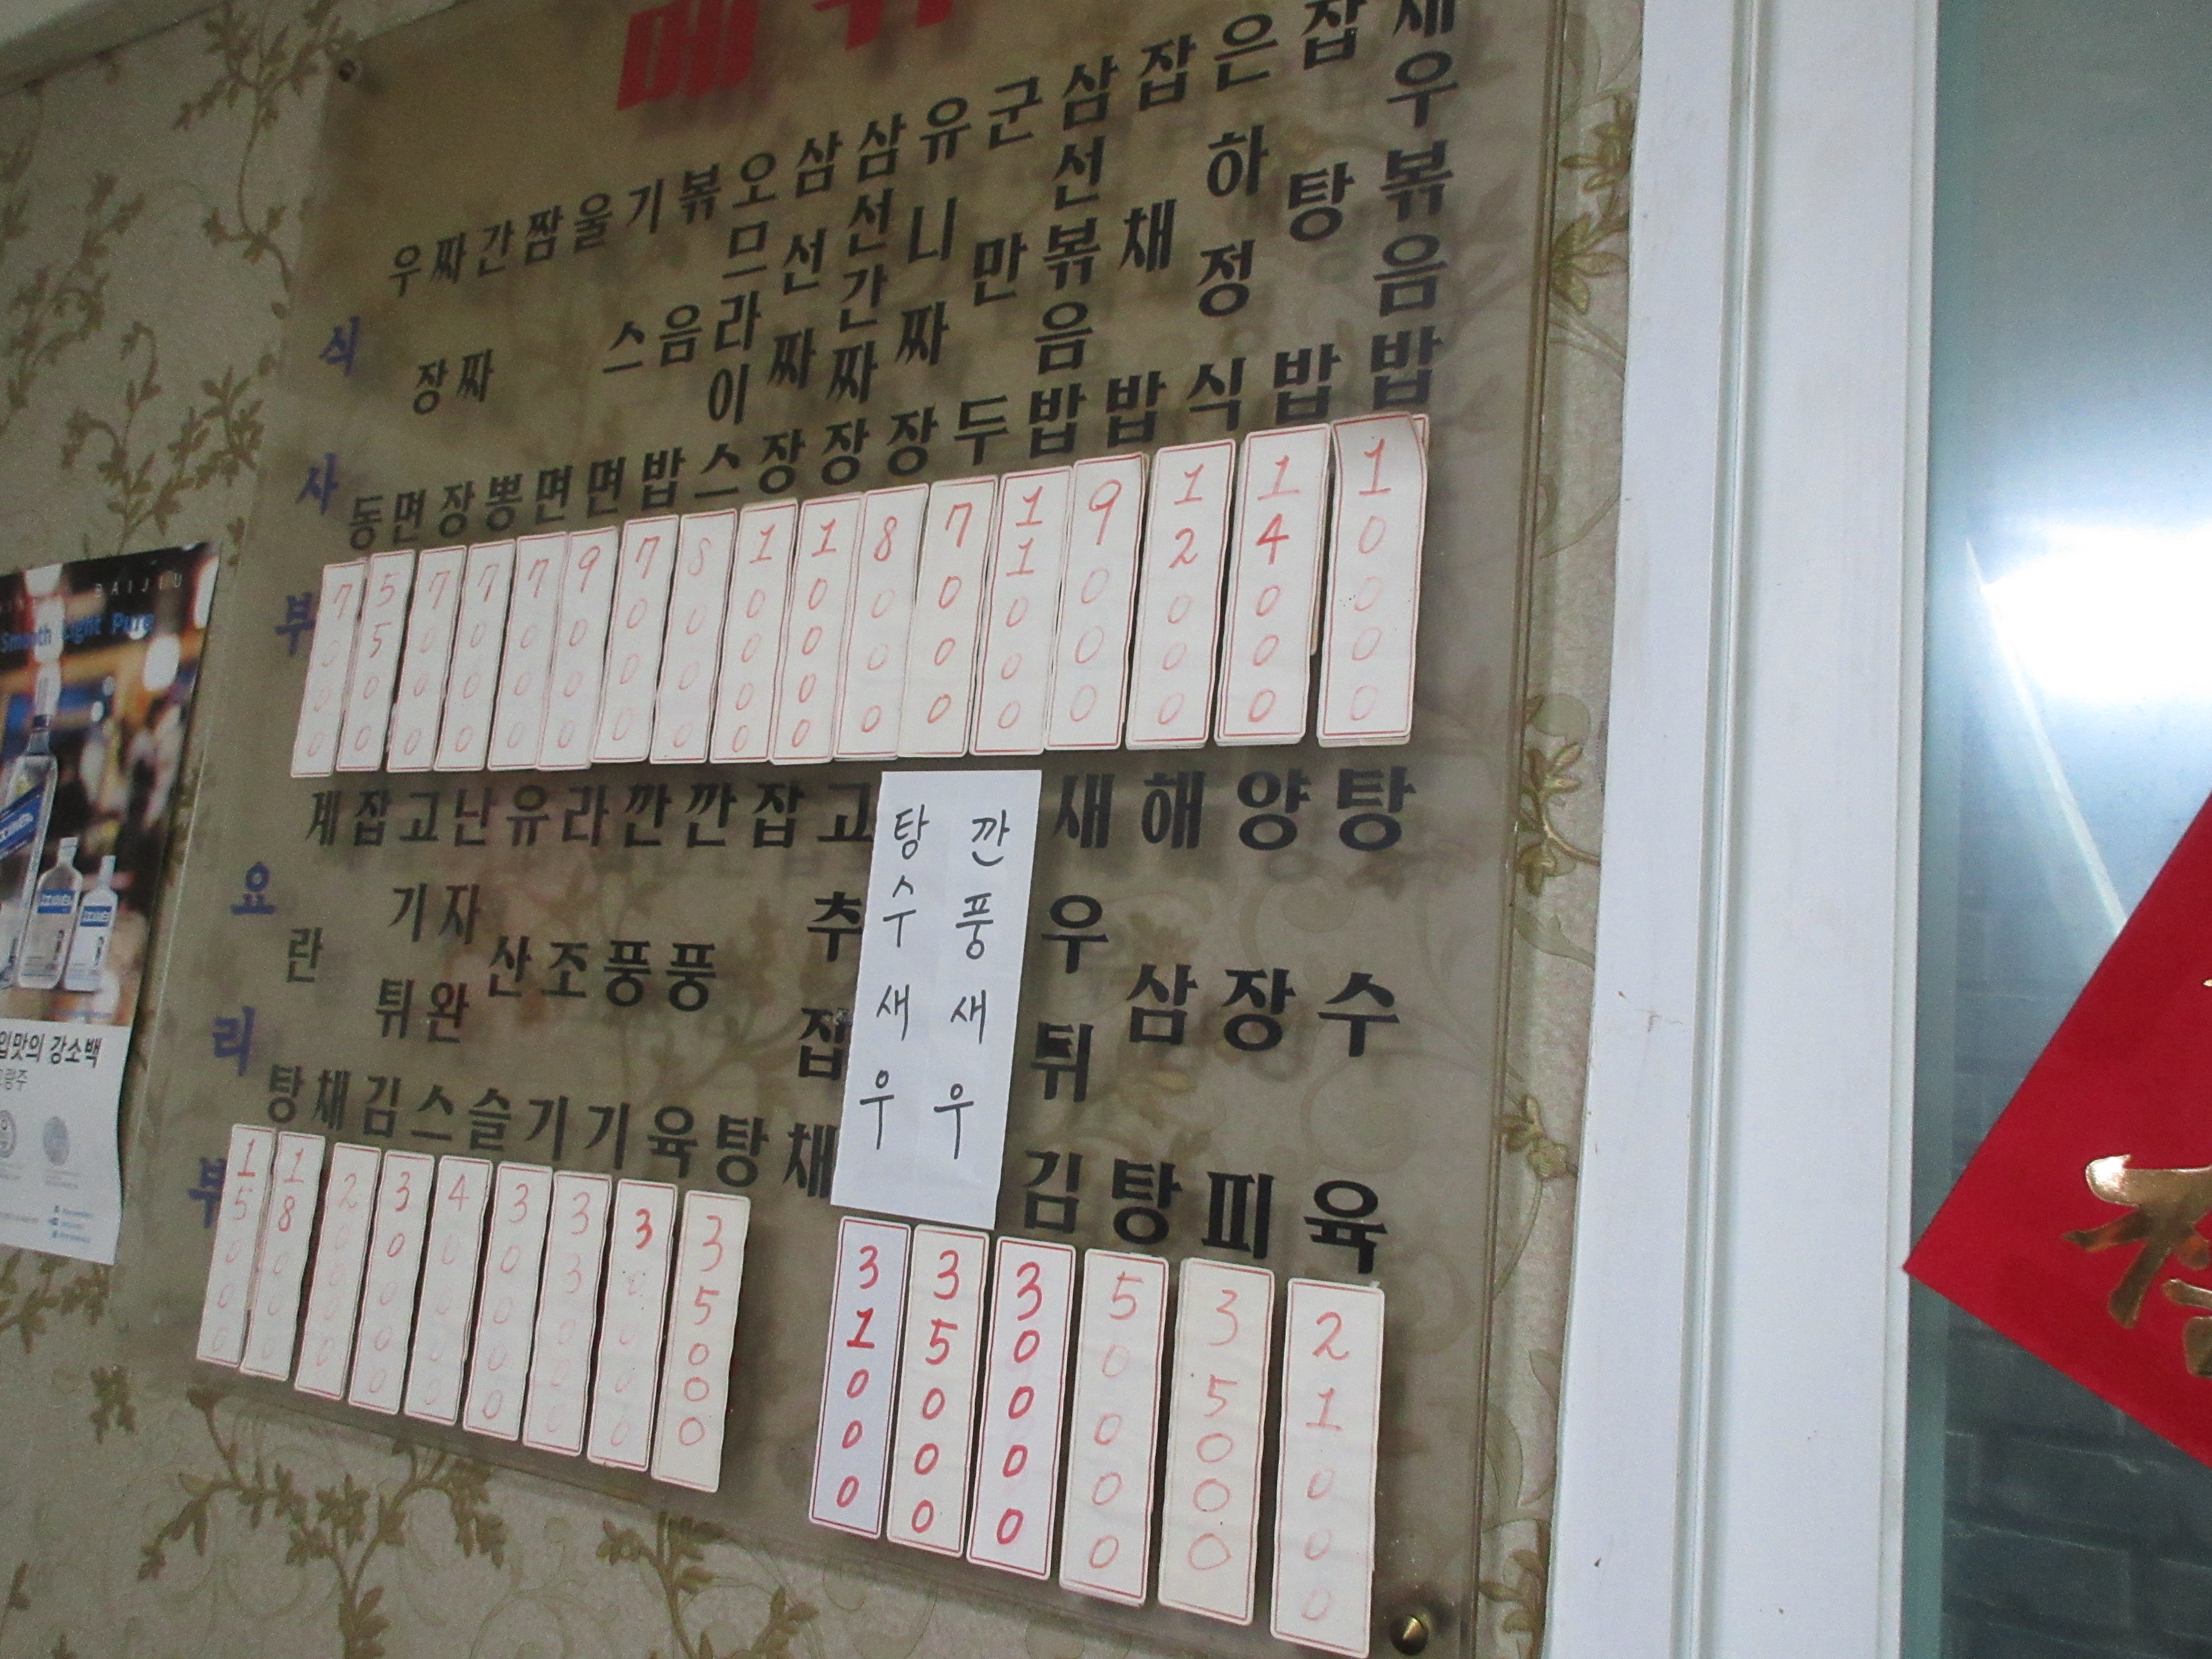 메뉴
식사부
우동 7000
짜장면 5500
간짜장 7000
짬뽕 7000
울면 7000
기스면 9000
볶음밥 7000
오므라이스 8000
삼선짜장 10000
삼선간짜장 10000
유니짜장 8000
군만두 7000
삼선볶음밥 11000
잡채밥 9000
은하정식 12000
잡탕밥 14000
새우볶음밥 10000
요리부
계란탕 15000
잡채 18000
고기튀김 20000
난자완스 30000
유산슬 40000
라조기 30000
깐풍기 33000
깐풍육 30000
잡탕 35000
고추잡채
탕수새우 31000
깐풍새우 35000
새우튀김 30000
해삼탕 50000
양장피 35000
탕수육 21000
BAIJIU
Smooth Light Pure
입맛의 강소백